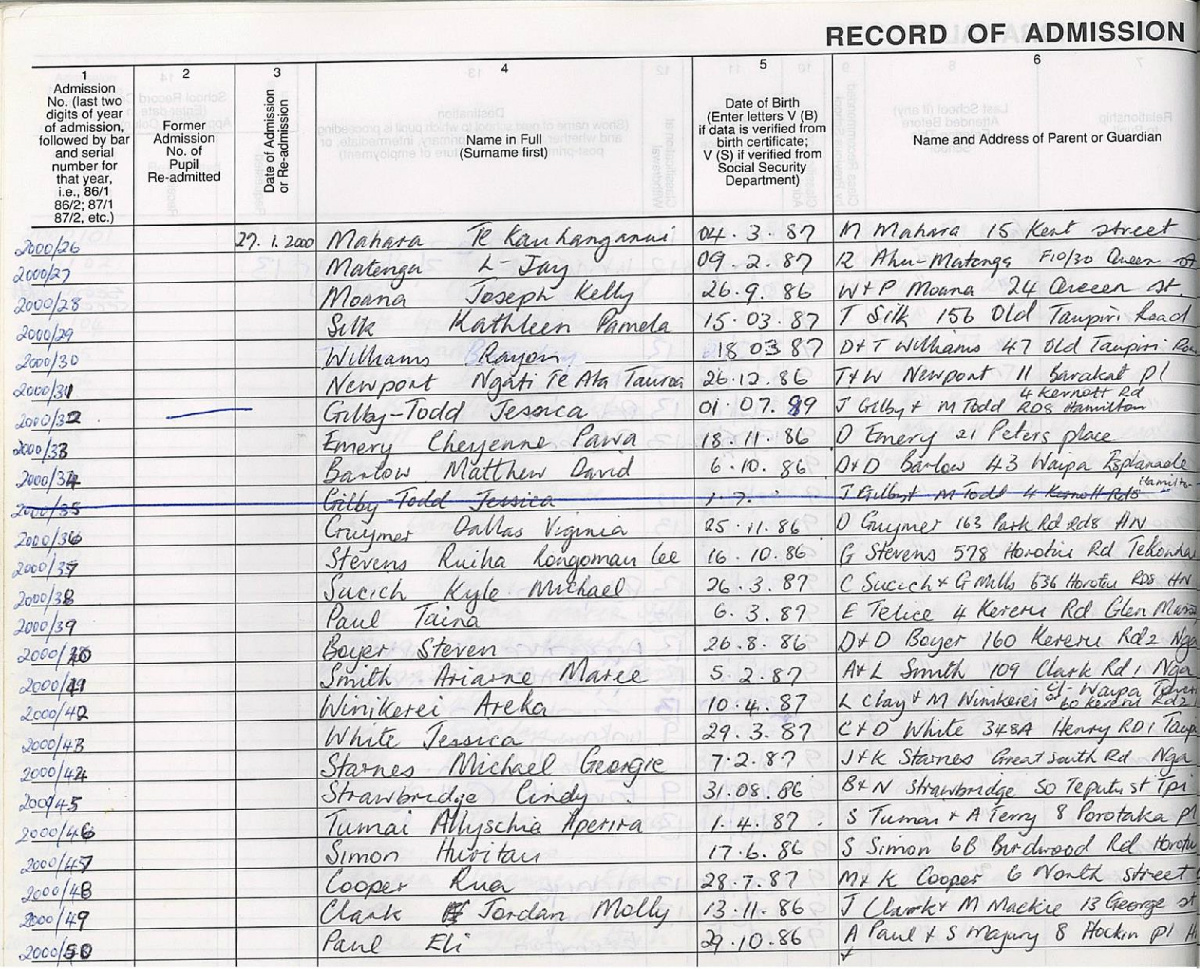 RECORD OF ADMISSION
1 2 3 4 5 6
Admission No. (last two digits of year of admission, followed by bar and serial number for that year, i.e., 86/1 86/2; 87/1 87/2, etc.)
Former Admission No. of Pupil Re-admitted
Date of Admission or Re-admission
Name in Full (Surname first)
Date of Birth (Enter letters V (B) if data is verified from birth certificate; V (S) if verified from Social Security Department)
Name and Address of Parent or Guardian
2000/26 27.1.2000 Mahara Te Kauhanganui 04.3.87 M Mahara 15 Kent street
2000/27 Matenga L-Jay 09.2.87 R Ahu-Matenga F10/30 Queen st
2000/28 Moana Joseph Kelly 26.9.86 W+P Moana 24 Queen st.
2000/29 Silk Kathleen Pamela 15.03.87 T Silk 156 Old Taupiri Road
2000/30 Williams Rayon 18 03 87 D+T Williams 47 Old Taupiri
2000/31 Newport Ngati Te Ata 26.12.86 T+W Newport 11 Barakat Pl
2000/32 Gilby-Todd Jessica 01.07. J Gilby + M Todd 4 Kernott Rd RD8 Hamilton
2000/33 Emery Cheyenne Pawa 18.11.86 D Emery 21 Peters place
2000/34 Barlow Matthew David 6.10.86 D+D Barlow 43 Waipa Esplanade
2000/35 Gilby-Todd Jessica 1.7. J Gilby+ M Todd 4 Kernott Rd8
2000/36 Guymer Dallas Viginia 25.11.86 D Guymer 163 Park Rd Rd8 HN
2000/37 Stevens Ruiha Rongoman Lee 16.10.86 G Stevens 578 Horotiu Rd
2000/38 Sucich Kyle Michael 26.3.87 C Sucich + G Mills 636 Horotiu RD8 HN
2000/39 Paul Taina 6.3.87 E 4 Kereru Rd Glen
2000/40 Boyer Steven 26.8.86 D+D Boyer 160 Kereru Rd2 Nga
2000/41 Smith Arianne Maree 5.2.87 A+L Smith 109 Clark Rd 1 Nga
2000/42 Winikerei Areka 10.4.87 L Clay + M Winikerei 60 Kereru Rd2
2000/43 White Jessica 29.3.87 C+D White 348A Henry RD1 Taup
2000/44 Starnes Michael Georgie 7.2.87 J+K Starnes Great South Rd Nga
2000/45 Strawbridge Cindy 31.08.86 B+N Strawbridge 50 Teputu st
2000/46 Tumai Allyschia Aperira 1.4.87. S Tumai + A Terry 8 Porotaka Pl
2000/47 Simon 17.6.86 S Simon 6B Birdwood Rd Horotiu
2000/48 Cooper Rua 28.7.87 M+K Cooper 6 North street
2000/49 Clark Jordan Molly 13.11.86 J Clark+ M Mackie 13 George st
2000/50 Paul Eli 29.10.86 A Paul + S Majury 8 Hockin Pl